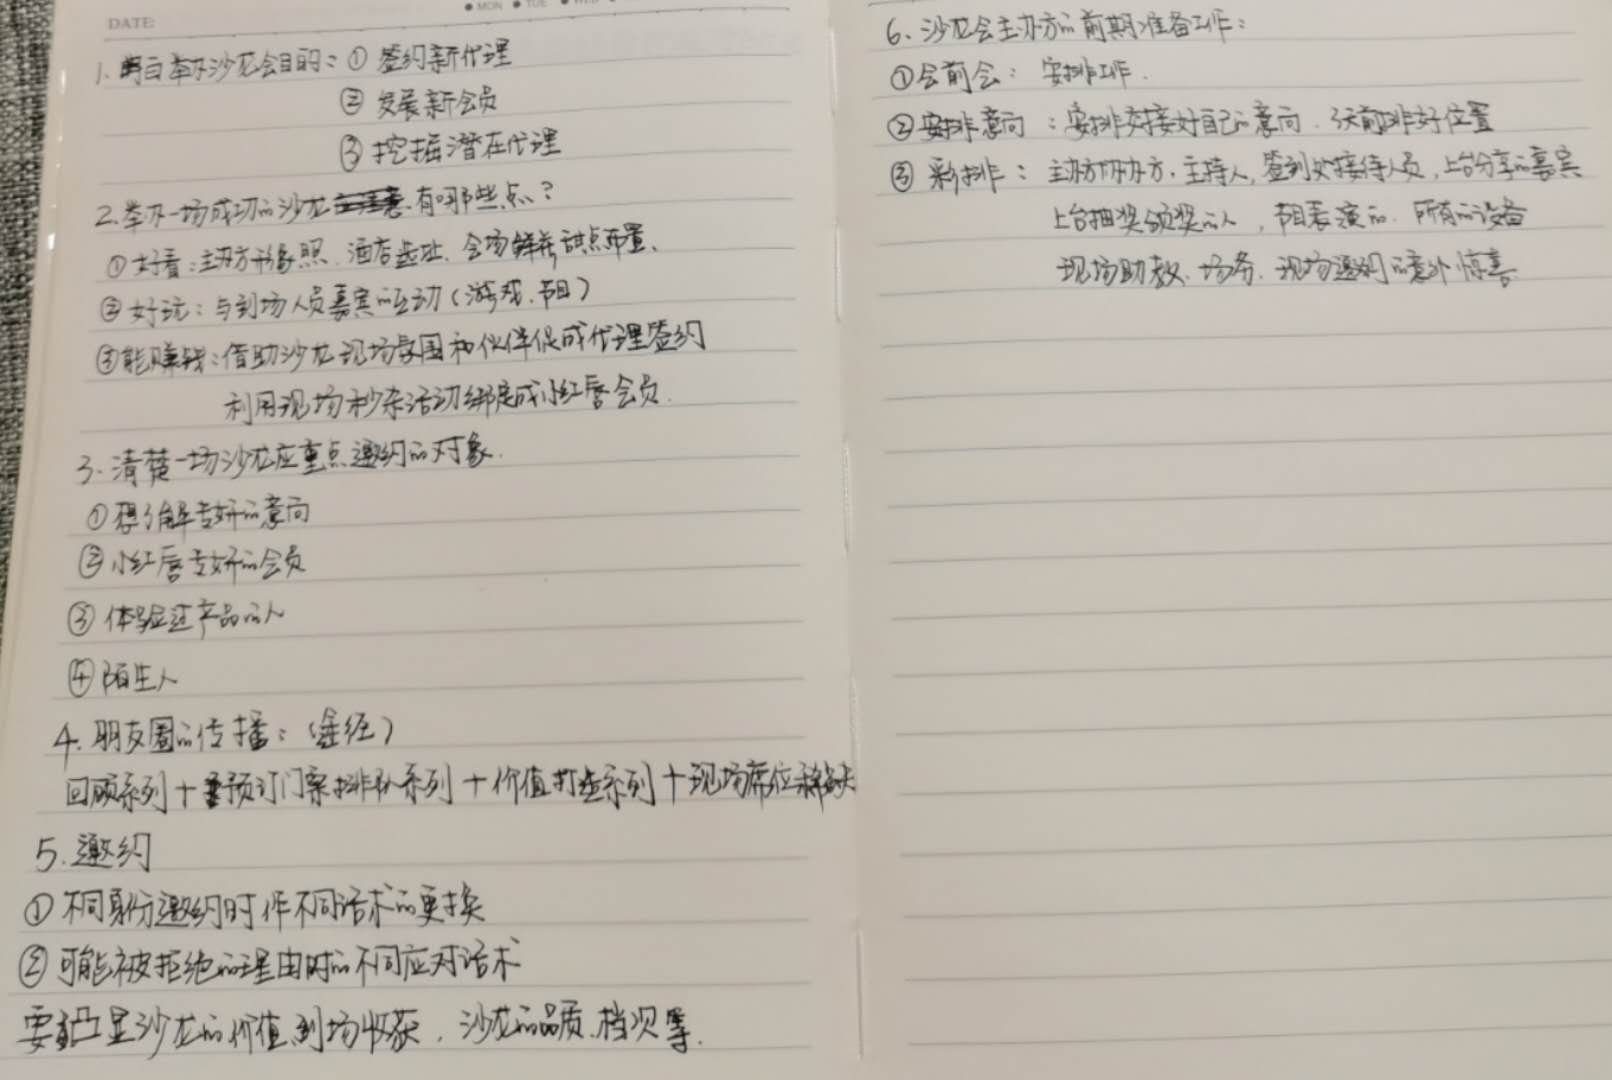 DATE:
● MON ● TUE ● WED
1. 明白举办沙龙会目的：① 签约新代理
② 发展新会员
③ 挖掘潜在代理
2. 举办一场成功的沙龙有哪些点？
① 好看：主办方形象照、酒店选址、会场鲜花甜点布置、
② 好玩：与到场人员嘉宾的互动（游戏、节目）
③ 能赚钱：借助沙龙现场氛围和伙伴促成代理签约
利用现场秒杀活动绑定成小红唇会员.
3. 清楚一场沙龙应重点邀约的对象.
① 想了解专妍的意向
② 小红唇专妍的会员
③ 体验过产品的人
④ 陌生人
4. 朋友圈的传播：（途径）
回顾系列＋预订门票排队系列＋价值打造系列＋现场席位稀缺
5. 邀约
① 不同身份邀约时作不同话术的更换
② 可能被拒绝的理由时的不同应对话术
要凸显沙龙的价值、到场收获，沙龙的品质、档次等.
6、沙龙会主办方的前期准备工作：
① 会前会：安排工作.
② 安排意向：安排交接好自己的意向、3天前排好位置
③ 彩排：主办方协办方、主持人，签到处接待人员，上台分享的嘉宾
上台抽奖颁奖的人，节目表演的、所有的设备
现场助教、场务、现场邀约的意外惊喜